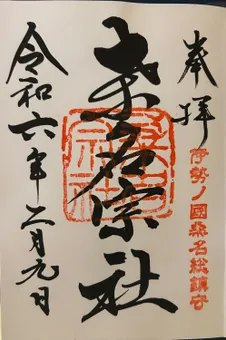 奉拝
伊勢ノ國桑名総鎮守
桑名宗社
桑名宗社
令和六年二月九日